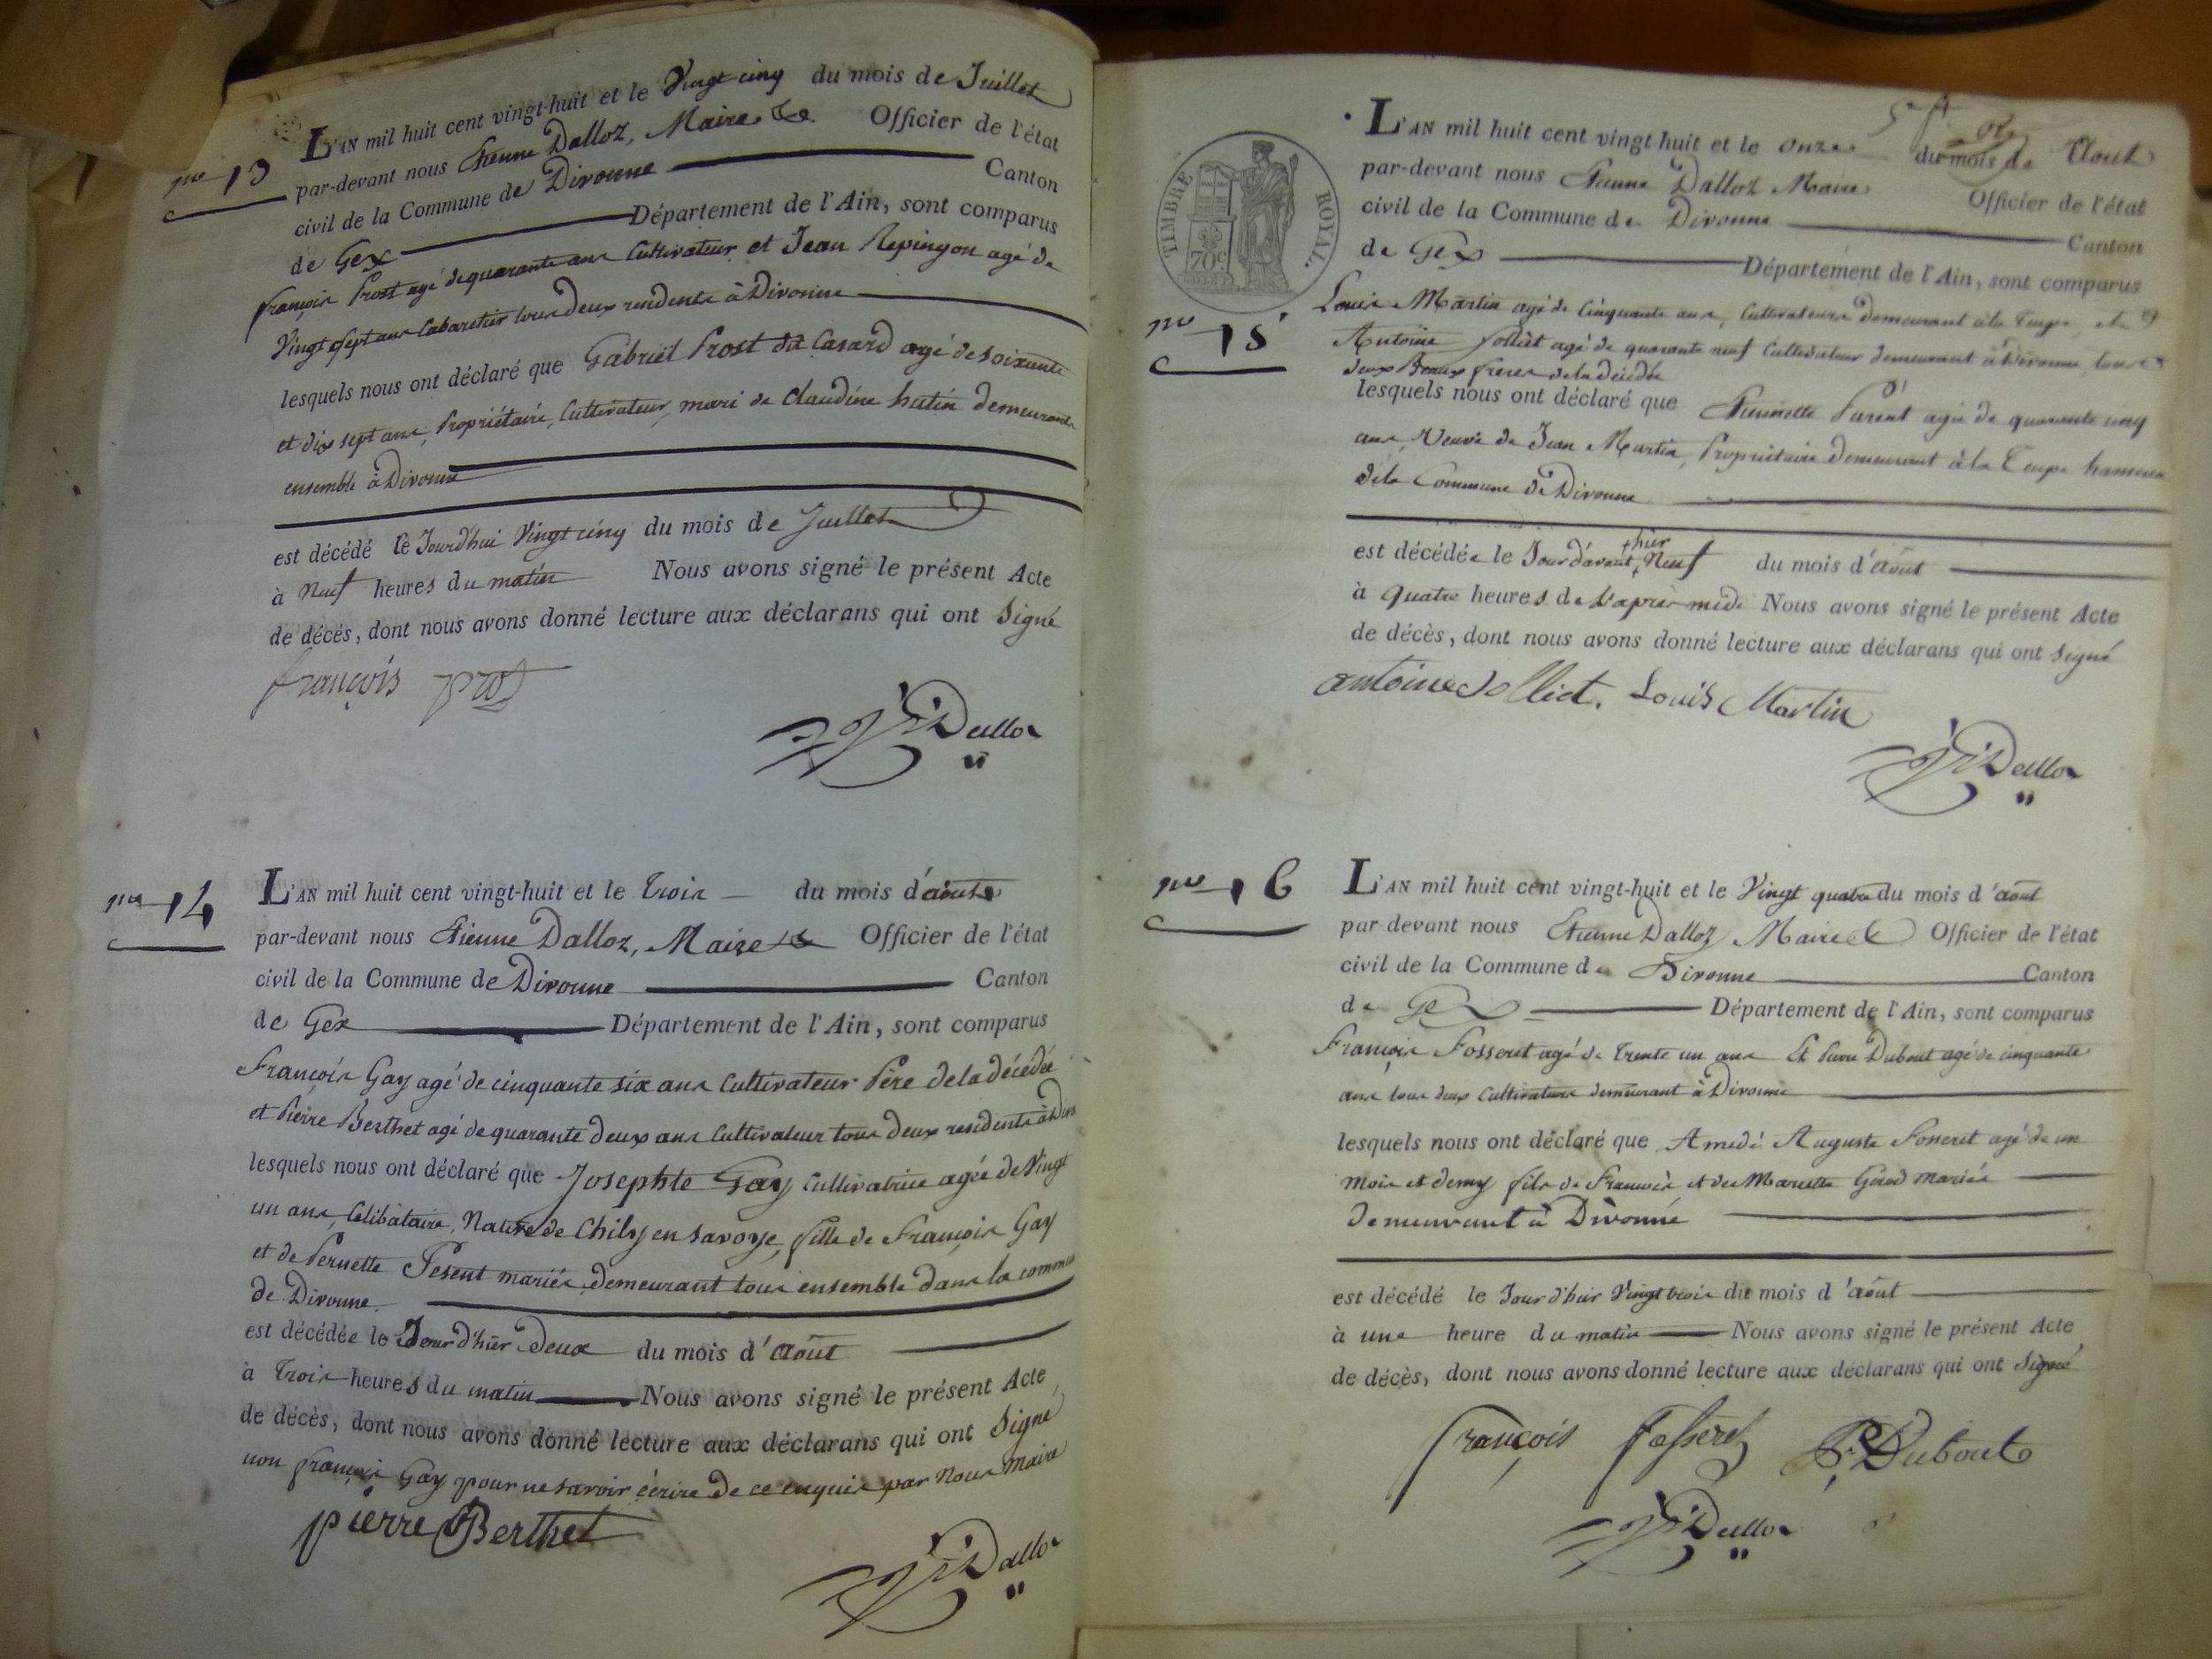 nº 13
L'AN mil huit cent vingt-huit et le Vingt cinq du mois de Juillet
par-devant nous Etienne Dalloz, Maire Officier de l'état
civil de la Commune de Divonne Canton
de Gex Département de l'Ain, sont comparus
françois Prost agé de quarante ans Cultivateur et Jean Repingon agé de
Vingt sept ans Cabaretier tous deux residents à Divonne
lesquels nous ont déclaré que Gabriel Prost dit Casard agé de soixante
et dix sept ans, Propriétaire, Cultivateur, mari de Claudine hutin demeurants
ensemble à Divonne
est décédé le Jourd'hui Vingt cinq du mois de Juillet
à Neuf heures du matin Nous avons signé le présent Acte
de décès, dont nous avons donné lecture aux déclarans qui ont Signé
françois prost
Dalloz
nº 14
L'AN mil huit cent vingt-huit et le Trois du mois d'août
par-devant nous Etienne Dalloz, Maire Officier de l'état
civil de la Commune de Divonne Canton
de Gex Département de l'Ain, sont comparus
François Gay agé de cinquante six ans Cultivateur Père de la décédée
et Pierre Berthet agé de quarante deux ans Cultivateur tous deux residents à Div
lesquels nous ont déclaré que Josephte Gay Cultivatrice agée de Vingt
un ans, Célibataire, Native de Chily en Savoye, fille de François Gay
et de Pernette Pesent mariés demeurant tous ensemble dans la commu
de Divonne
est décédée le Jour d'hier Deux du mois d'août
à Trois heures du matin Nous avons signé le présent Acte
de décès, dont nous avons donné lecture aux déclarans qui ont Signé
non françois Gay pour ne savoir écrire de ce enquis par Nous Maire
pierre Berthet
Dalloz
L'AN mil huit cent vingt-huit et le onze du mois de Aout
TIMBRE ROYAL.
70c
par-devant nous Etienne Dalloz Maire Officier de l'état
civil de la Commune de Divonne Canton
de Gex Département de l'Ain, sont comparus
nº 15
Louis Martin agé de Cinquante ans, Cultivateur demeurant à la Teupe, et
Antoine Jolliet agé de quarante neuf Cultivateur demeurant à Divonne tous
deux Beaux freres de la décédée
lesquels nous ont déclaré que Etiennette Parent agée de quarante cinq
ans, Veuve de Jean Martin, Propriétaire demeurant à la Teupe hameau
de la Commune de Divonne
est décédée le Jour d'avant +hier Neuf du mois d'août
à quatre heures de l'après midi Nous avons signé le présent Acte
de décès, dont nous avons donné lecture aux déclarans qui ont signé
antoine Jolliet. Louis Martin
Dalloz
nº 16
L'AN mil huit cent vingt-huit et le Vingt quatre du mois d'août
par devant nous Etienne Dalloz Maire Officier de l'état
civil de la Commune de Divonne Canton
de Gex Département de l'Ain, sont comparus
François Fosseret agé de Trente un ans Et Pierre Dubout agé de cinquante
ans tous deux Cultivateurs demeurant à Divonne
lesquels nous ont déclaré que Amedé Auguste Fosseret agé de un
mois et demy fils de François et de Mariette Girod mariés
demeurant à Divonne
est décédé le Jour d'hier Vingt trois du mois d'août
à une heure du matin Nous avons signé le présent Acte
de décès, dont nous avons donné lecture aux déclarans qui ont Signé
françois fosseret P. Dubout
Dalloz